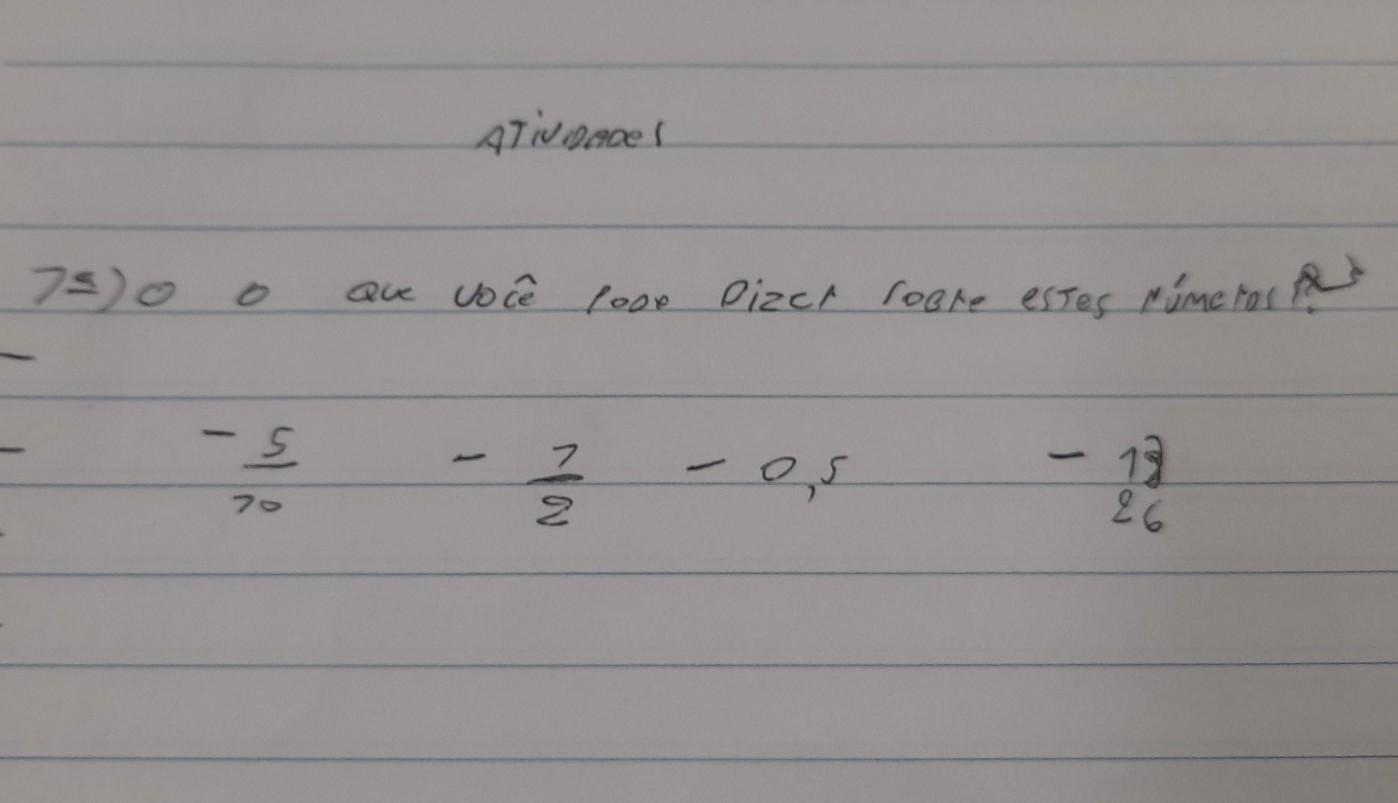 ATIVIDADES
1ª) O O que você pode dizer sobre estes números?
- 5/10 - 1/2 - 0,5 - 13/26